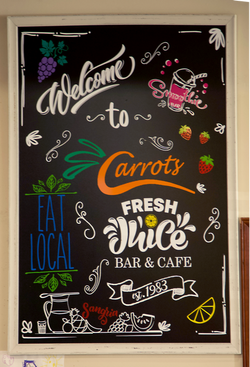 Welcome
Smoothie
to
Carrots
EAT
LOCAL
FRESH
Juice
BAR & CAFE
est. 1983
Sangria